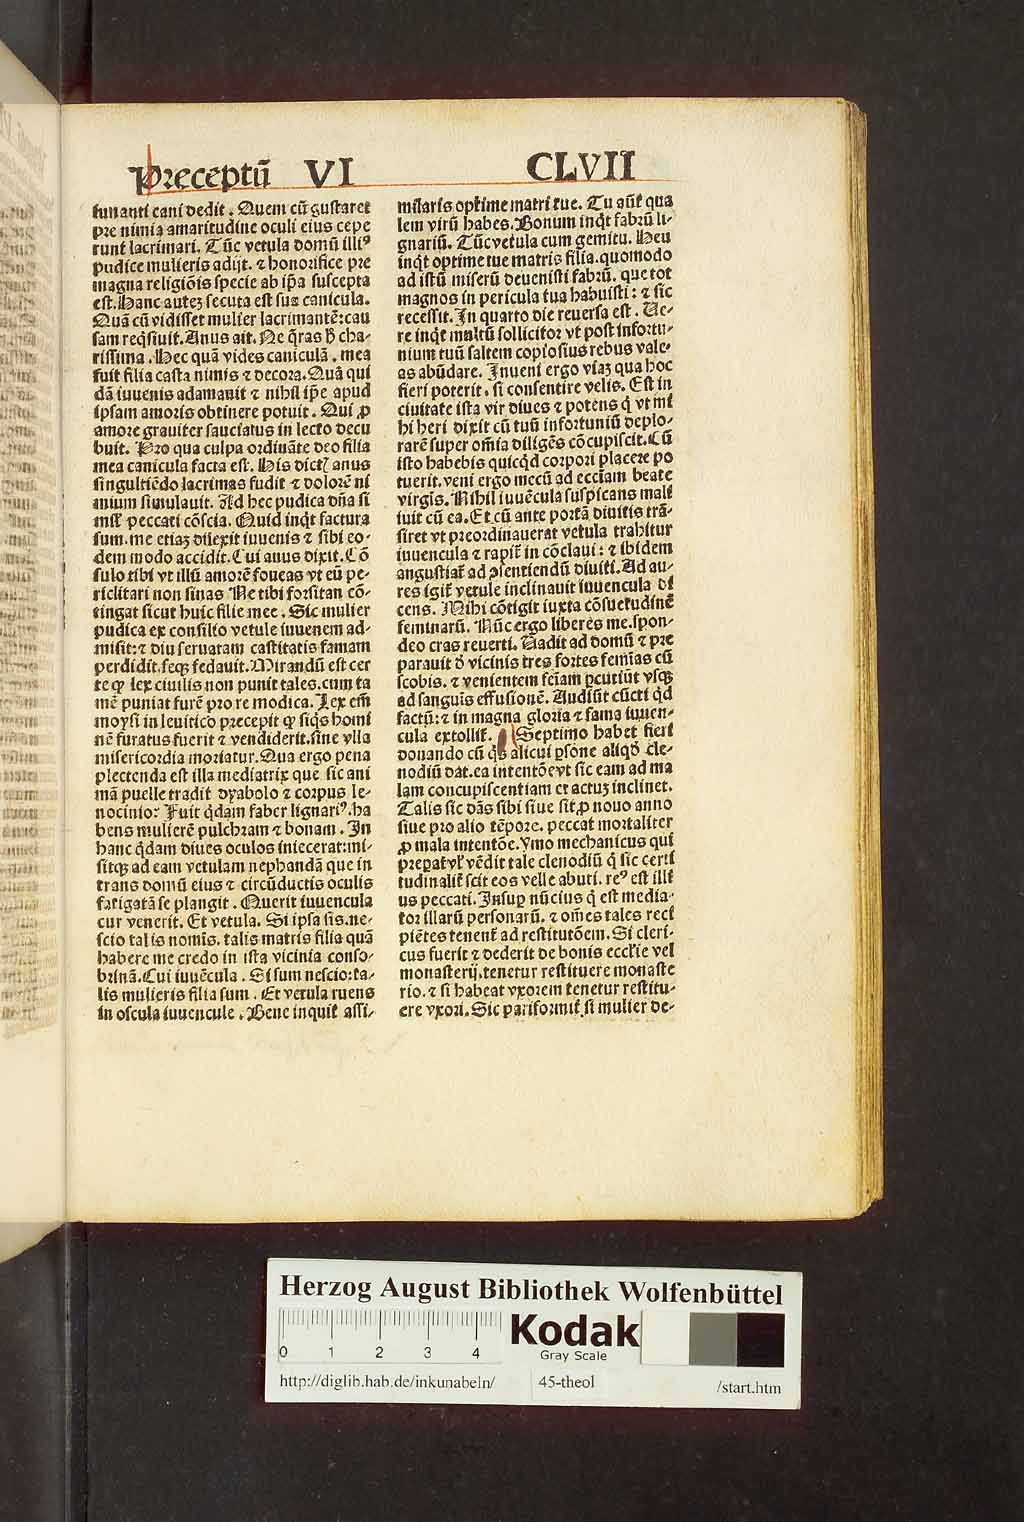 Preceptū VI CLVII
iunanti cani dedit. Quem cū gustaret
pre nimia amaritudine oculi eius cepe
runt lacrimari. Tūc vetula domū illiꝰ
pudice mulieris adijt. ⁊ honorifice pre
magna religiōis specie ab ip̄a suscepta
est. Hanc autez secuta est sua canicula.
Quā cū vidisset mulier lacrimantē: cau
sam reqͥsiuit. Anus ait. Ne q̄ras b̄ cha-
rissima. Hec quā vides caniculā. mea
fuit filia casta nimis ⁊ decora. Quā qui
dā iuuenis adamauit ⁊ nihil ip̄e apud
ipsam amoris obtinere potuit. Qui ꝓ
amore grauiter sauciatus in lecto decu
buit. Pro qua culpa ordināte deo filia
mea canicula facta est. His dict̄ anus
singultiēdo lacrimas fudit ⁊ dolorē ni
mium simulauit. Ad hec pudica dn̄a si
mil̄ peccati cōscia. Quid inqͥt factura
sum. me etiaz dilexit iuuenis ⁊ sibi eo-
dem modo accidit. Cui anus dixit. Cō
sulo tibi vt illū amorē foueas vt eū pe-
riclitari non sinas Ne tibi forsitan cō-
tingat sicut huic filie mee. Sic mulier
pudica ex consilio vetule iuuenem ad-
misit: ⁊ diu seruatam castitatis famam
perdidit. seqꝫ fedauit. Mirandū est cer
te ꝙ lex ciuilis non punit tales. cum ta
mē puniat furē pro re modica. Lex em̄
moysi in leuitico precepit ꝙ siqͥs homi
nē furatus fuerit ⁊ vendiderit. sine vlla
misericordia moriatur. Qua ergo pena
plectenda est illa mediatrix que sic ani
mā puelle tradit dyabolo ⁊ corpus le-
nocinio: Fuit qͥdam faber lignariꝰ. ha
bens mulierē pulchram ⁊ bonam. In
hanc qͥdam diues oculos iniecerat: mi-
sitqꝫ ad eam vetulam nephandā que in
trans domū eius ⁊ circūductis oculis
fatigatā se plangit. Querit iuuencula
cur venerit. Et vetula. Si ipsa sis. ne-
scio talis nomīs. talis matris filia quā
habere me credo in ista vicinia conso-
brinā. Cui iuuēcula. Si sum nescio: ta-
lis mulieris filia sum. Et vetula ruens
in oscula iuuencule. Bene inquit̄ assi-
milaris optime matri tue. Tu aūt̄ qua
lem virū habes. Bonum inqͥt fabrū li-
gnariū. Tūc vetula cum gemitu. Heu
inqͥt optime tue matris filia. quomodo
ad istū miserū deuenisti fabrū. que tot
magnos in pericula tua habuisti: ⁊ sic
recessit. In quarto die reuersa est. Ve-
re inqͥt multū sollicitor vt post infortu-
nium tuū saltem copiosius rebus vale-
as abūdare. Inueni ergo viaz qua hoc
fieri poterit. si consentire velis. Est in
ciuitate ista vir diues ⁊ potens q̄ vt mi
hi heri dixit cū tuū infortuniū deplo-
rarē super om̄ia diligēs cōcupiscit. Cū
isto habebis quicqͥd corpori placere po
tuerit. veni ergo mecū ad ecc̄iam beate
virgīs. Nihil iuuēcula suspicans mali
iuit cū ea. Et cū ante portā diuitis trā-
siret vt preordinauerat vetula trahitur
iuuencula ⁊ rapit̄ in cōclaui: ⁊ ibidem
angustiat̄ ad ꝯsentiendū diuiti. Ad au-
res igit̄ vetule inclinauit iuuencula di
cens. Mihi cōtigit iuxta cōsuetudinē
feminarū. Nūc ergo liberes me. spon-
deo cras reuerti. Vadit ad domū ⁊ pre
parauit d̄ vicinis tres fortes femīas cū
scobis. ⁊ venientem feīam ꝑcutiūt vsqꝫ
ad sanguīs effusionē. Audiūt cūcti qͥd
factū: ⁊ in magna gloria ⁊ fama iuuen-
cula extollit̄. Septimo habet fieri
donando cū qͥs alicui ꝑsone aliqͦd cle-
nodiū dat. ea intentōe vt sic eam ad ma
lam concupiscentiam et actuz inclinet.
Talis sic dās sibi siue sit ꝓ nouo anno
siue pro alio tēpore. peccat mortaliter
ꝓ mala intentōe. Ymo mechanicus qui
prepat̄ vl̄ vēdit tale clenodiū q̄ sic certi
tudinalit̄ scit eos velle abuti. reꝰ est illi
us peccati. Insuꝑ nūcius q̄ est media-
tor illarū personarū. ⁊ om̄es tales reci
piētes tenent̄ ad restitutōem. Si cleri-
cus fuerit ⁊ dederit de bonis eccl̄ie vel
monasterij. tenetur restituere monaste
rio. ⁊ si habeat vxorem tenetur restitu-
ere vxori. Sic pariformit̄ si mulier de-
Herzog August Bibliothek Wolfenbüttel
0 1 2 3 4
Kodak
Gray Scale
http://diglib.hab.de/inkunabeln/ 45-theol /start.htm